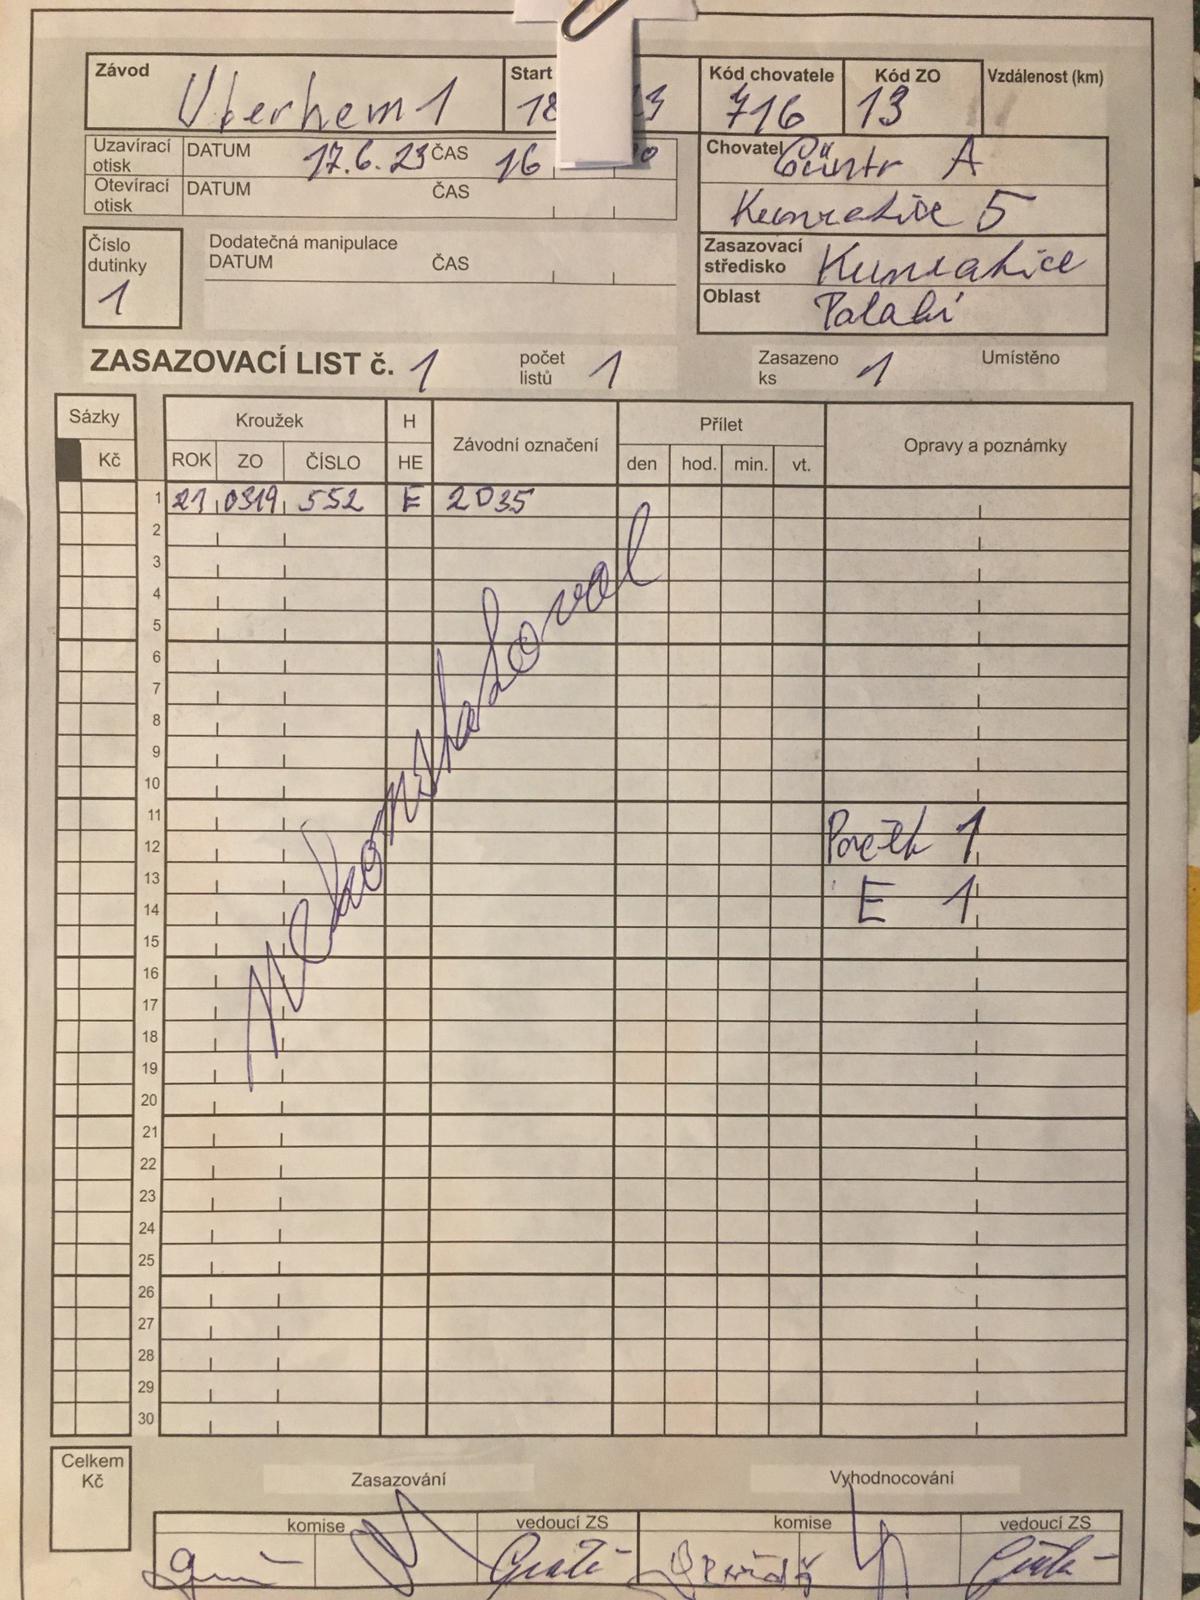 Závod Start Kód chovatele Kód ZO Vzdálenost (km)
18 716 13
Uzavírací otisk DATUM 17.6.23 ČAS 16
Otevírací otisk DATUM ČAS
Chovatel A
Kunratice 5
Číslo dutinky 1
Dodatečná manipulace
DATUM ČAS
Zasazovací středisko Kunratice
Oblast
ZASAZOVACÍ LIST č. 1 počet listů 1 Zasazeno ks 1 Umístěno
Sázky Kroužek H Závodní označení Přílet Opravy a poznámky
Kč ROK ZO ČÍSLO HE den hod. min. vt.
1 21 0319 552 E 2035
2
3
4
5
6
7
8
9
10
11
12 1
13
14 E 1
15
16
17
18
19
20
21
22
23
24
25
26
27
28
29
30
Celkem Kč
Zasazování Vyhodnocování
komise vedoucí ZS komise vedoucí ZS